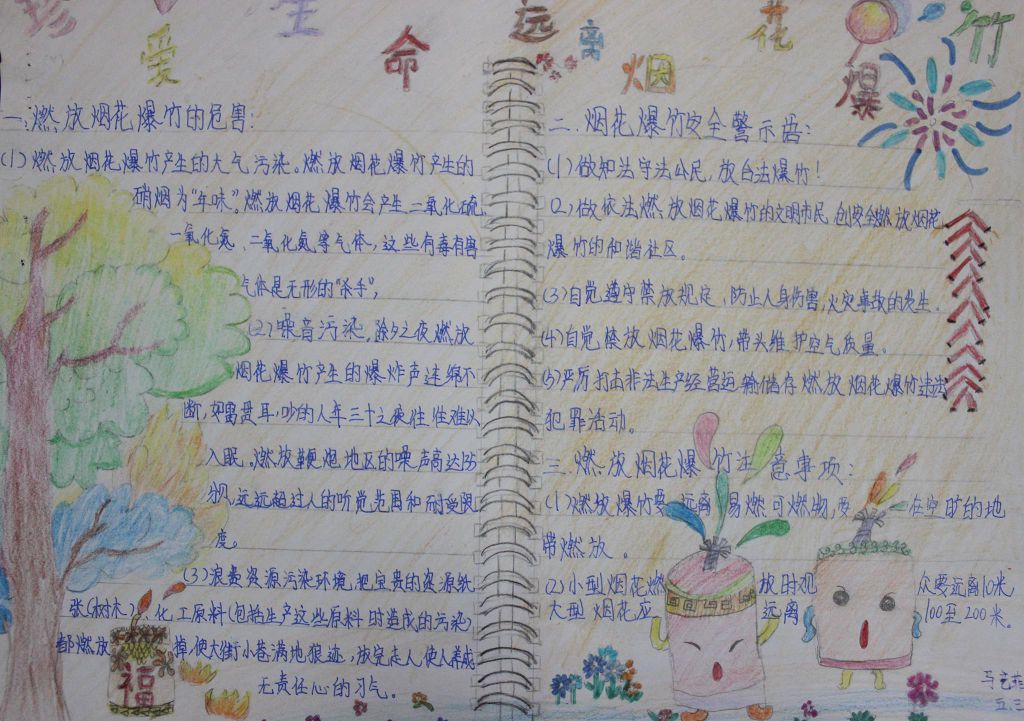 珍爱生命远离烟花爆竹
一、燃放烟花爆竹的危害:
(1)燃放烟花爆竹产生的大气污染。燃放烟花爆竹产生的
硝烟为“年味”。燃放烟花爆竹会产生二氧化硫,
一氧化氮、二氧化氮等气体,这些有毒有害
气体是无形的“杀手”,
(2)噪音污染,除夕之夜燃放
烟花爆竹产生的爆炸声连绵不
断,如雷贯耳,吵的人年三十之夜往往难以
入眠。燃放鞭炮地区的噪声高达135
分贝,远远超过人的听觉范围和耐受限
度。
(3)浪费资源污染环境,把宝贵的资源纸
张(树木)、化工原料(包括生产这些原料时造成的污染)
都燃放掉,使大街小巷满地狼迹,放完走人使人养成
无责任心的习气。
福
二、烟花爆竹安全警示语:
(1)做知法守法公民,放合法爆竹!
(2)做依法燃放烟花爆竹的文明市民,创安全燃放烟花
爆竹的和谐社区。
(3)自觉遵守禁放规定,防止人身伤害,火灾事故的发生。
(4)自觉禁放烟花爆竹,带头维护空气质量。
(5)严厉打击非法生产经营运输储存燃放烟花爆竹违法
犯罪活动。
三、燃放烟花爆竹注意事项:
(1)燃放爆竹要远离易燃可燃物,要在空旷的地
带燃放。
(2)小型烟花燃放时观众要远离10米,
大型烟花应远离100至200米。
五、三